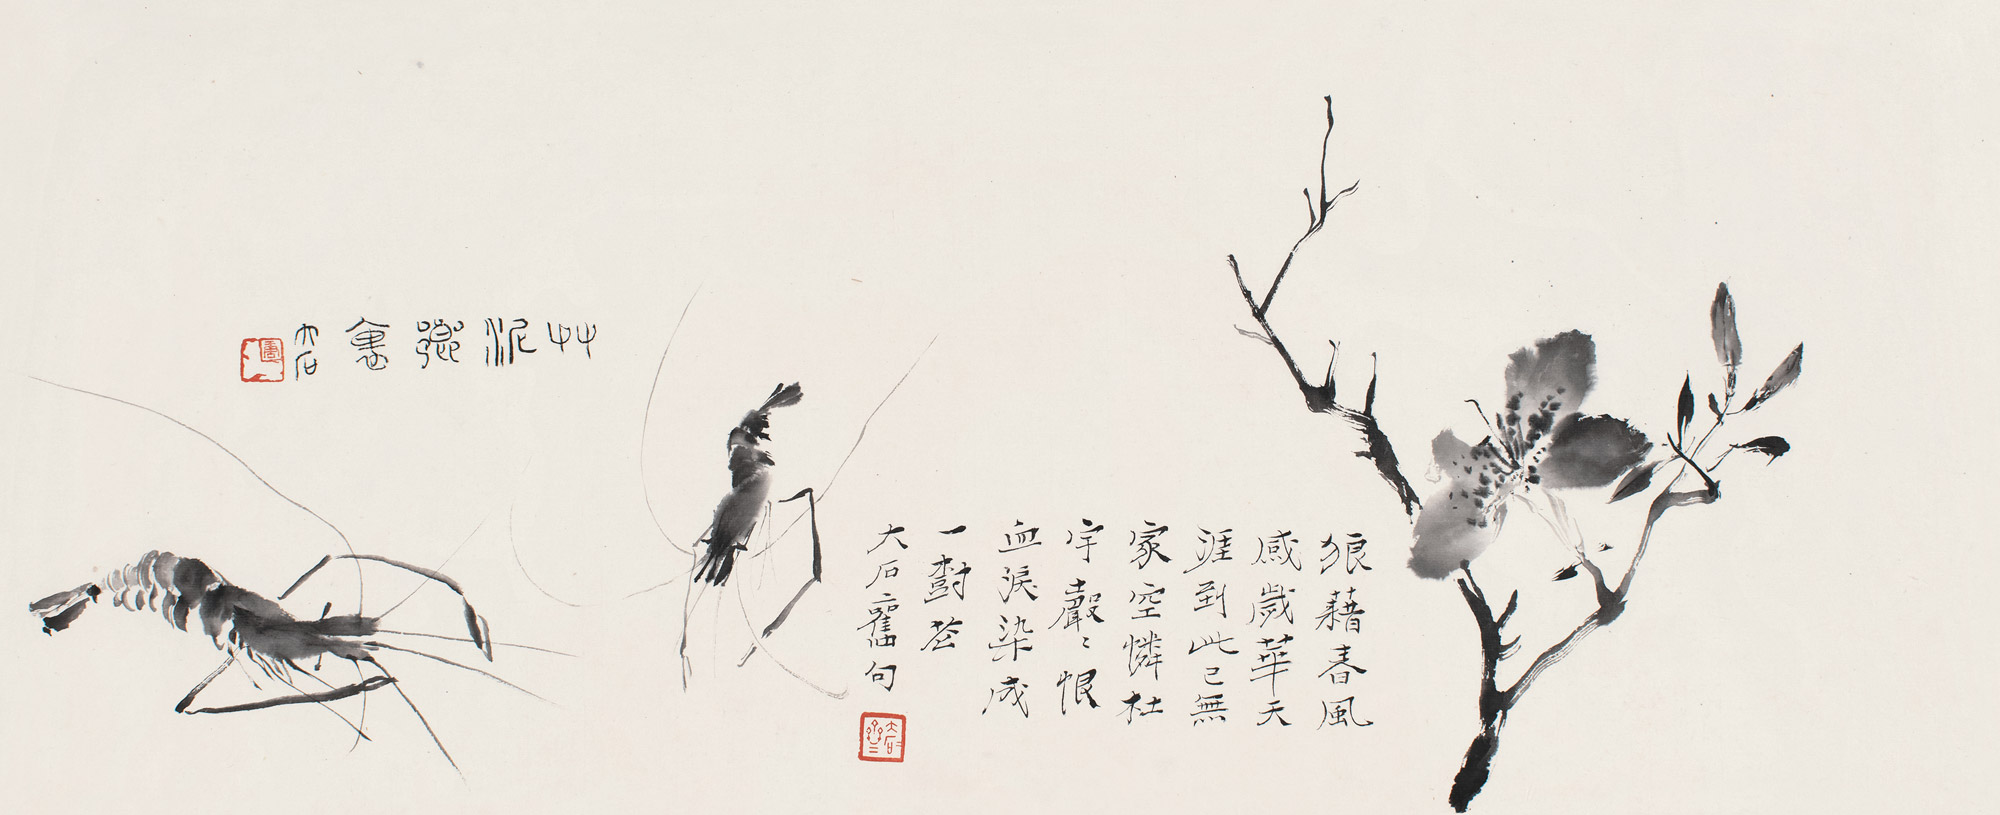 狼藉春風
感歲華天
涯到此已無
家空憐杜
宇聲〻恨
血淚染成
一樹花
大石舊句
艸泥鄉裏
大石